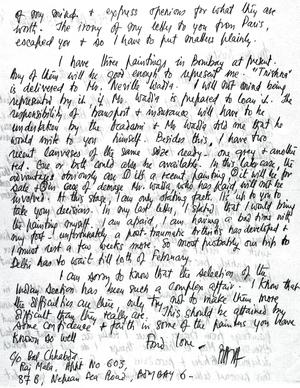 of my mind & express openions for what they are
worth. The irony of my letter to you from Paris,
escaped you & so I have to put matters plainly.
I have three paintings in Bombay at present.
Any of them will be good enough to represent me.
is delivered to Mr. Neville Wadia. I will not mind being
represented by it if Mr. Wadia is prepared to loan it. The
responsibility of transport & insurance will have to be
undertaken by the Academi & Mr Wadia told me that he
would write to you himself. Besides this, I have two
recent canvases of the same size ready. One grey & another
red. One or both could also be available. In this later case, the
advantages obviously are ① it's a recent painting ② it will be for
sale & ③ in case of damage Mr. Wadia, who has paid, will not be
involved. At this stage, I am only stating facts. It's up to you to
take your decisions. In my last letter, I stated that I would bring
the painting myself. I am afraid, I am having a bad time with
my foot - unfortunately a post-traumatic arthritis has developed &
I must rest a few weeks more. So most probably our trip to
Delhi has to wait till 10th of February.
I am sorry to know that the selection of the
Indian section has been such a complex affair. I know that
the difficulties are there, only try not to make them more
difficult than they really are. This should be attained by
some confidence & faith in some of the painters you have
known so well
Fond love -
C/o Bal Chhabda
Raj Mahl, Aptt No 603,
87 B, Nepean Sea Road, BOMBAY 6 -